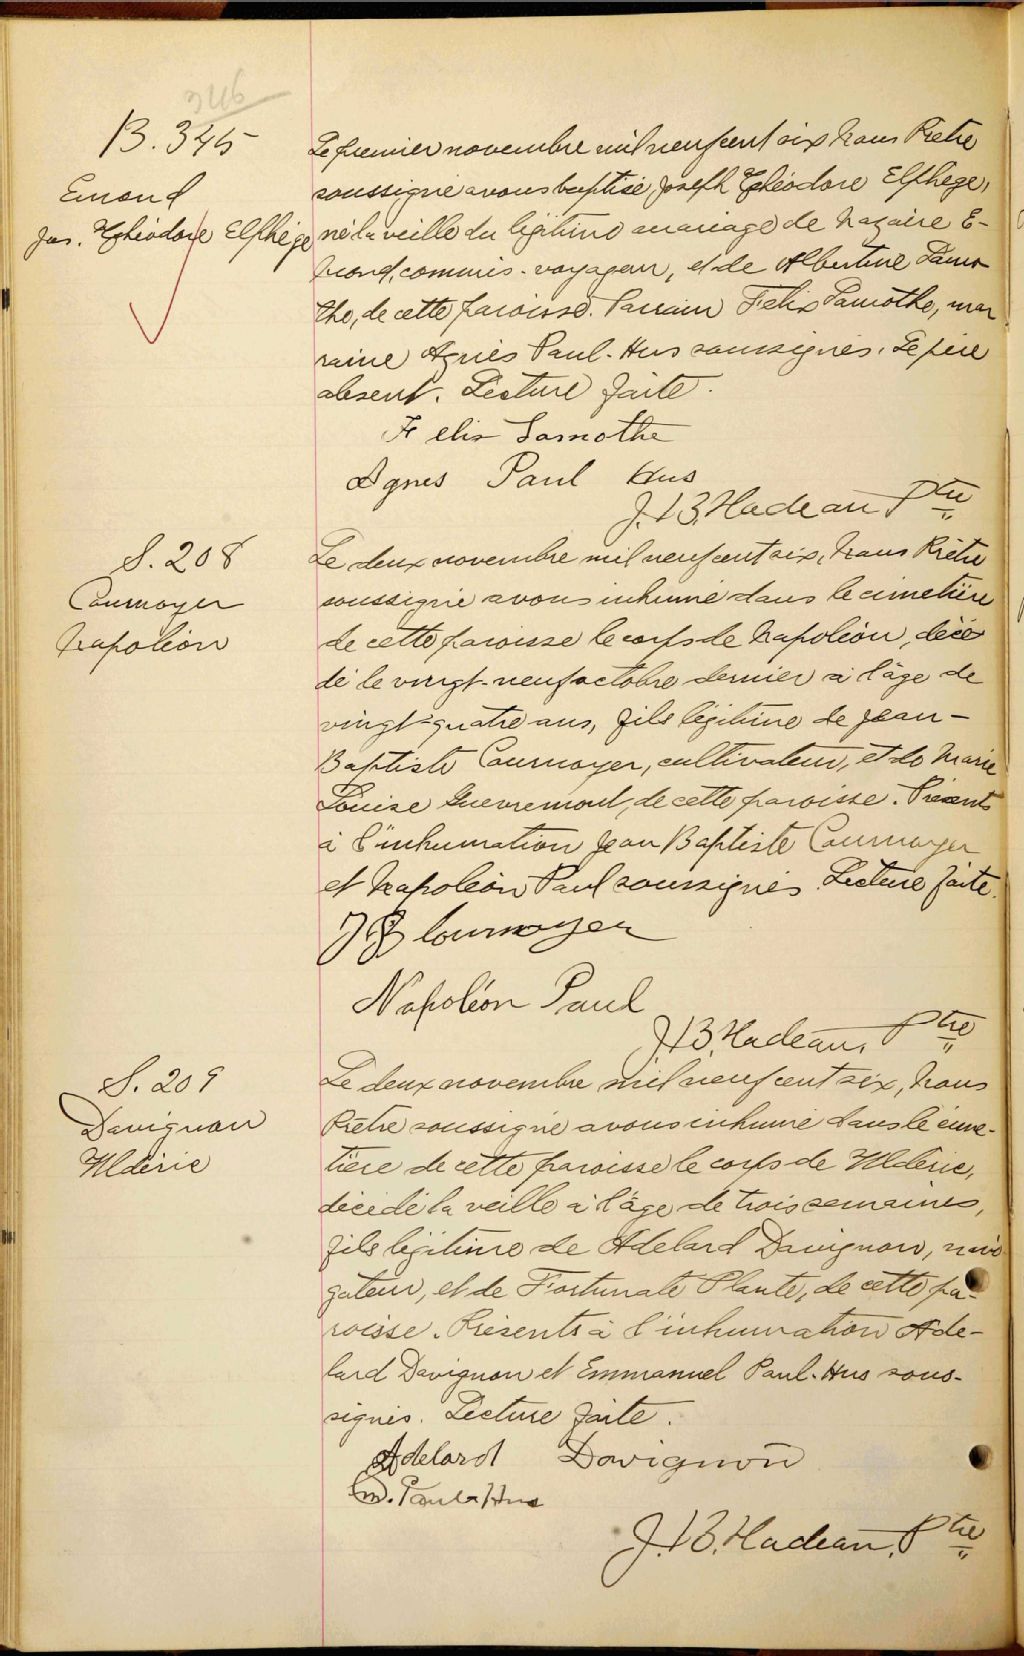 346
B. 345
Emond
Jos. Théodore Elphège
Le premier novembre mil neuf cent six, Nous Prêtre
soussigné avons baptisé Joseph Théodore Elphège,
né la veille du légitime mariage de Nazaire E-
mond, commis-voyageur, et de Albertine Lamo-
the, de cette paroisse. Parrain Félix Lamothe, mar
raine Agnès Paul-Hus soussignés. Le père
absent. Lecture faite.
Felix Lamothe
Agnes Paul Hus
J.B. Nadeau Ptre
S. 208
Cournoyer
Napoléon
Le deux novembre mil neuf cent six, Nous Prêtre
soussigné avons inhumé dans le cimetière
de cette paroisse le corps de Napoléon, décé
dé le vingt-neuf octobre dernier à l'âge de
vingt-quatre ans, fils légitime de Jean-
Baptiste Cournoyer, cultivateur, et de Marie
Louise Guevremont, de cette paroisse. Présents
à l'inhumation Jean Baptiste Cournoyer
et Napoléon Paul soussignés. Lecture faite.
J B Cournoyer
Napoléon Paul
J.B. Nadeau, Ptre
S. 209
Davignon
Ulderic
Le deux novembre mil neuf cent six, Nous
Prêtre soussigné avons inhumé dans le cime-
tière de cette paroisse le corps de Ulderic,
décédé la veille à l'âge de trois semaines,
fils légitime de Adelard Davignon, navi
gateur, et de Fortunate Plante, de cette pa-
roisse. Présents à l'inhumation Ade-
lard Davignon et Emmanuel Paul-Hus sous-
signés. Lecture faite.
Adelard Davignon
Em. Paul Hus
J.B. Nadeau, Ptre